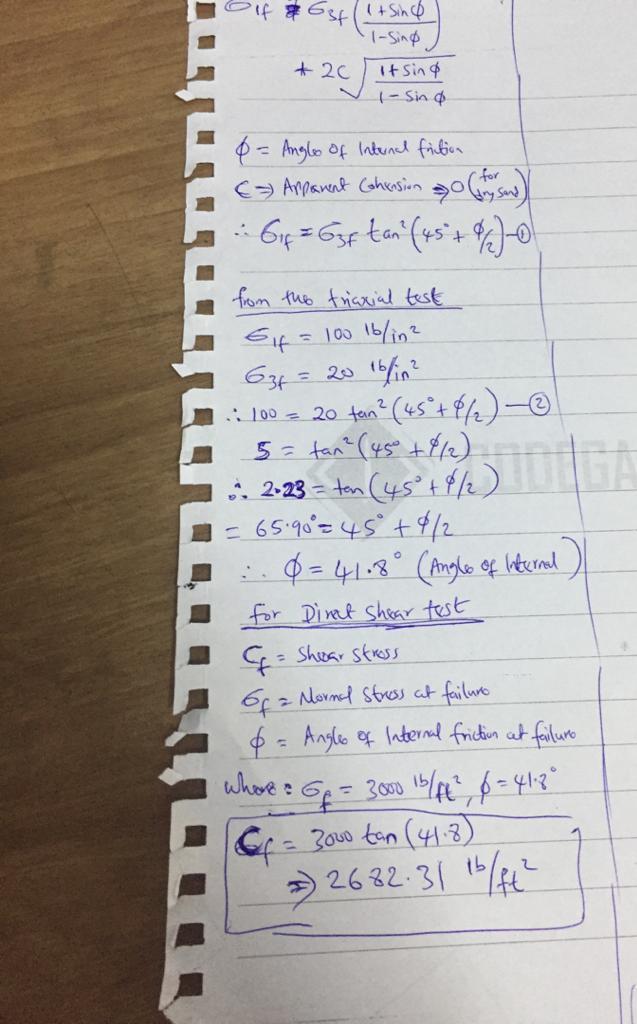 σ1f = σ3f (1+sinφ / 1-sinφ)
+ 2C √(1+sinφ / 1-sinφ)
φ = Angles of Internal friction
C => Apparent Cohension => 0 (for dry sand)
∴ σ1f = σ3f tan² (45° + φ/2) -①
from the triaxial test
σ1f = 100 lb/in²
σ3f = 20 lb/in²
∴ 100 = 20 tan² (45° + φ/2) -②
5 = tan² (45° + φ/2)
∴ 2.23 = tan (45° + φ/2)
= 65.90° = 45° + φ/2
∴ φ = 41.8° (Angle of Internal)
for Direct Shear test
Cf = Shear stress
σf = Normal Stress at failure
φ = Angles of Internal friction at failure
where: σf = 3000 lb/ft², φ = 41.8°
Cf = 3000 tan (41.8)
=> 2682.31 lb/ft²
CODEGA